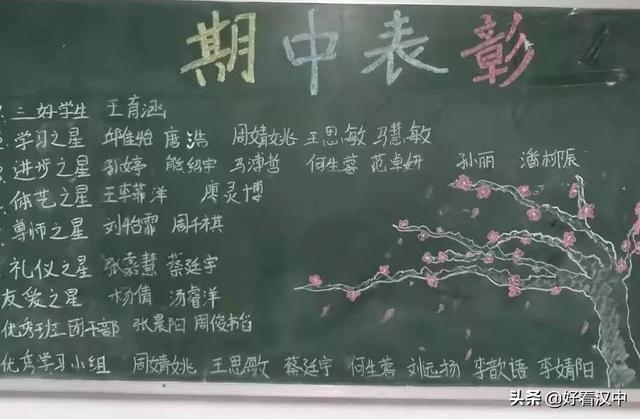 期中表彰
三好学生 王育涵
学习之星 邱佳怡 唐浩 周婧姚 王思敏 马慧敏
进步之星 孙婷 熊绍宇 马溥哲 何生蓉 范卓妍 孙丽 潘柳辰
体艺之星 王李菲洋 廖灵博
尊师之星 刘怡霏 周千祺
礼仪之星 张嘉慧 蔡廷宇
友爱之星 杨倩 汤睿洋
优秀班团干部 张晨阳 周俊韬
优秀学习小组 周婧姚 王思敏 蔡廷宇 何生蓉 刘远扬 李歆语 李婧阳
头条 @好看汉中